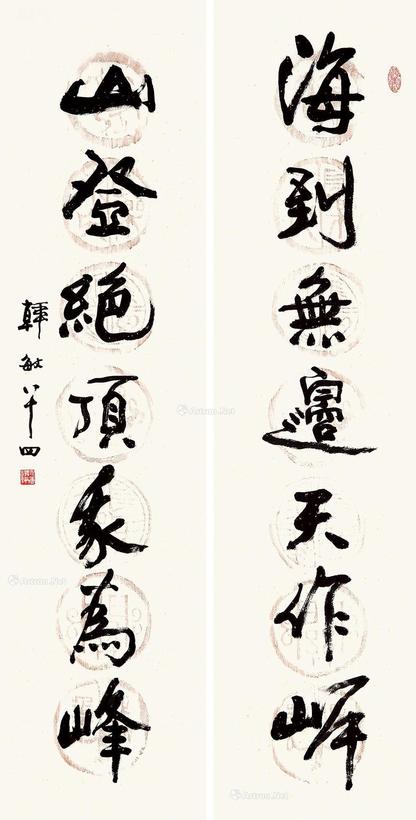 海到無邊天作岸
山登絕頂我為峰
韓敏八十四
Artron.Net
Artron.Net
Artron.Net
Artron.Net